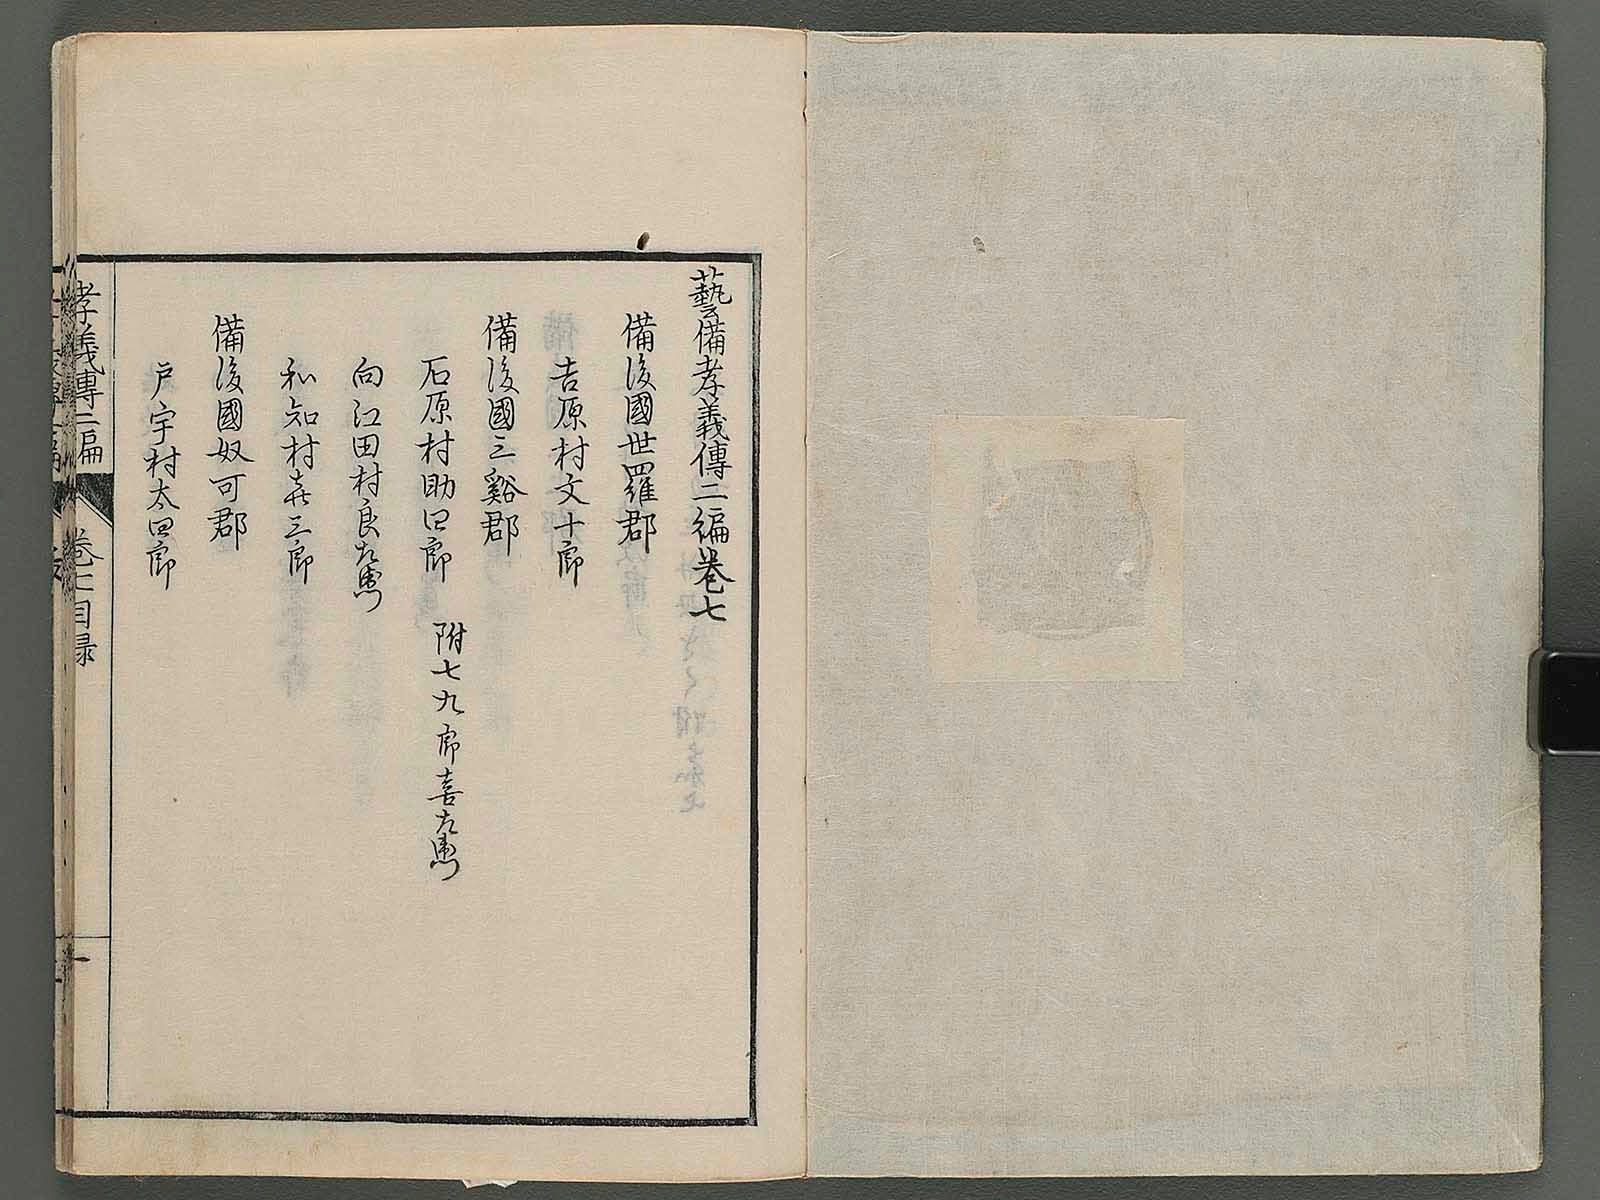 藝備孝義傳二編卷七
備後國世羅郡
吉原村文十郎
備後國三谿郡
石原村助四郎 附七九郎喜左衛門
向江田村良左衛門
和知村喜三郎
備後國奴可郡
戸宇村太四郎
孝義傳二編 卷七目録 一